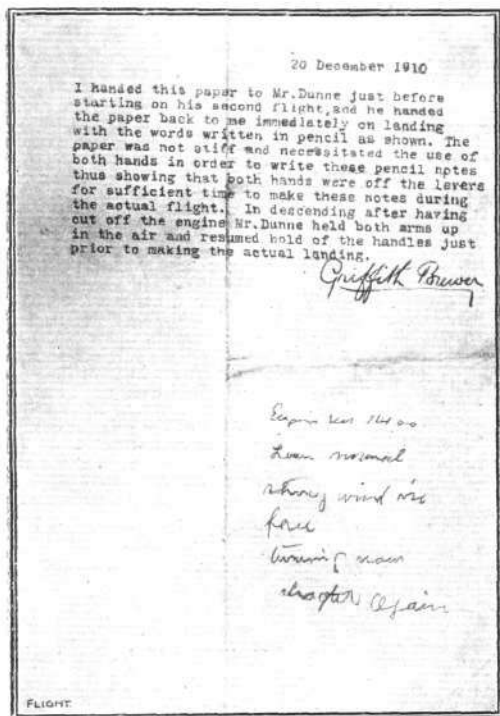 20 December 1910
I handed this paper to Mr.Dunne just before
starting on his second flight,and he handed
the paper back to me immediately on landing
with the words written in pencil as shown. The
paper was not stiff and necessitated the use of
both hands in order to write these pencil notes
thus showing that both hands were off the levers
for sufficient time to make these notes during
the actual flight. In descending after having
cut off the engine Mr.Dunne held both arms up
in the air and resumed hold of the handles just
prior to making the actual landing.
Griffith Brewer
normal
strong wind
turning now
again
FLIGHT.